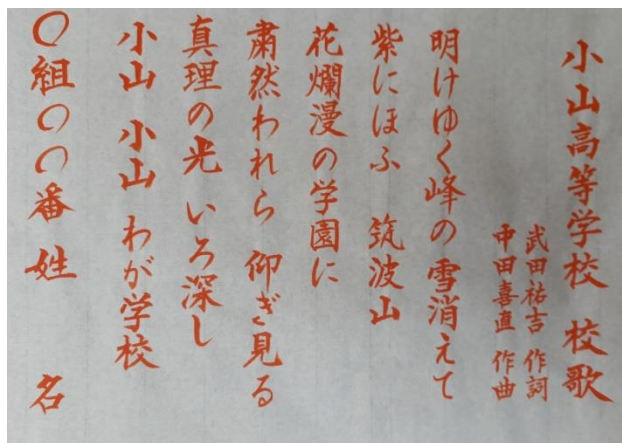 小山高等学校　校歌
武田祐吉　作詞
中田喜直　作曲
明けゆく峰の雪消えて
紫にほふ　筑波山
花爛漫の学園に
粛然われら　仰ぎ見る
真理の光　いろ深し
小山　小山　わが学校
〇組〇〇番　姓　名